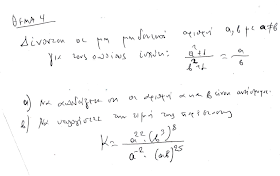 ΘΕΜΑ 4
Δίνονται οι μη μηδενικοί αριθμοί α, β με α≠β
για τους οποίους ισχύει: (α²+1)/(β²+1) = α/β
α) Να αποδείξετε ότι οι αριθμοί α και β είναι αντίστροφοι.
β) Να υπολογίσετε την τιμή της παράστασης
K = (α²² · (β³)⁸)/(α⁻² · (αβ)²⁵)